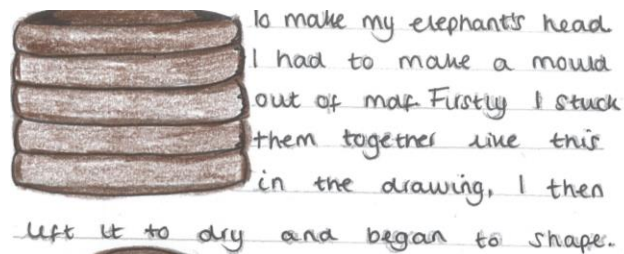 To make my elephant's head
I had to make a mould
out of mdf. Firstly I stuck
them together like this
in the drawing, I then
left it to dry and began to shape.